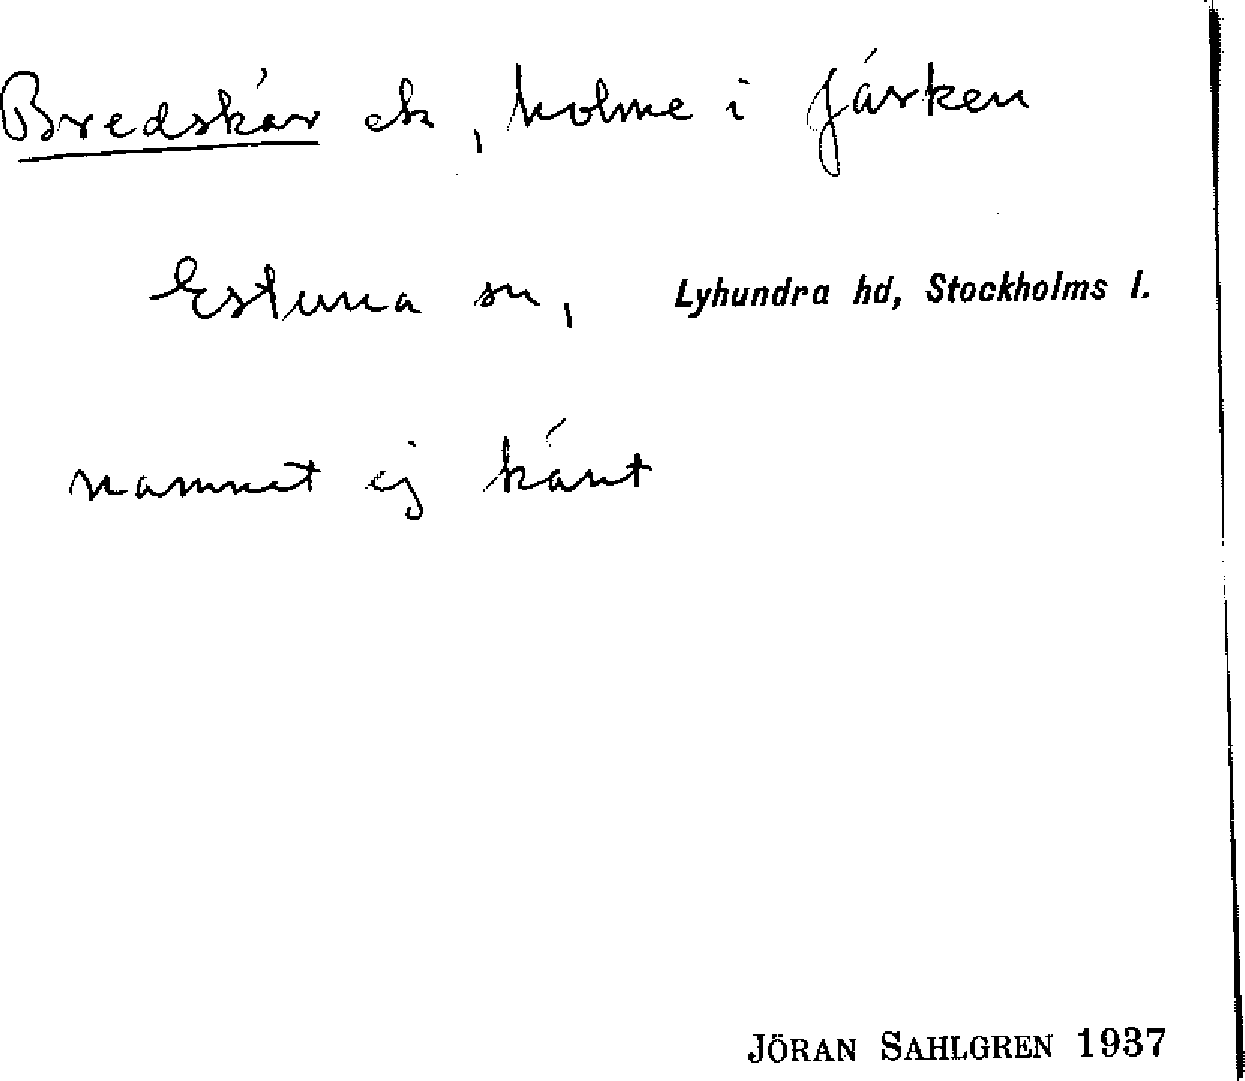 Bredskär ek, holme i Järken
Estuna sn, Lyhundra hd, Stockholms l.
namnet ej känt
JÖRAN SAHLGREN 1937